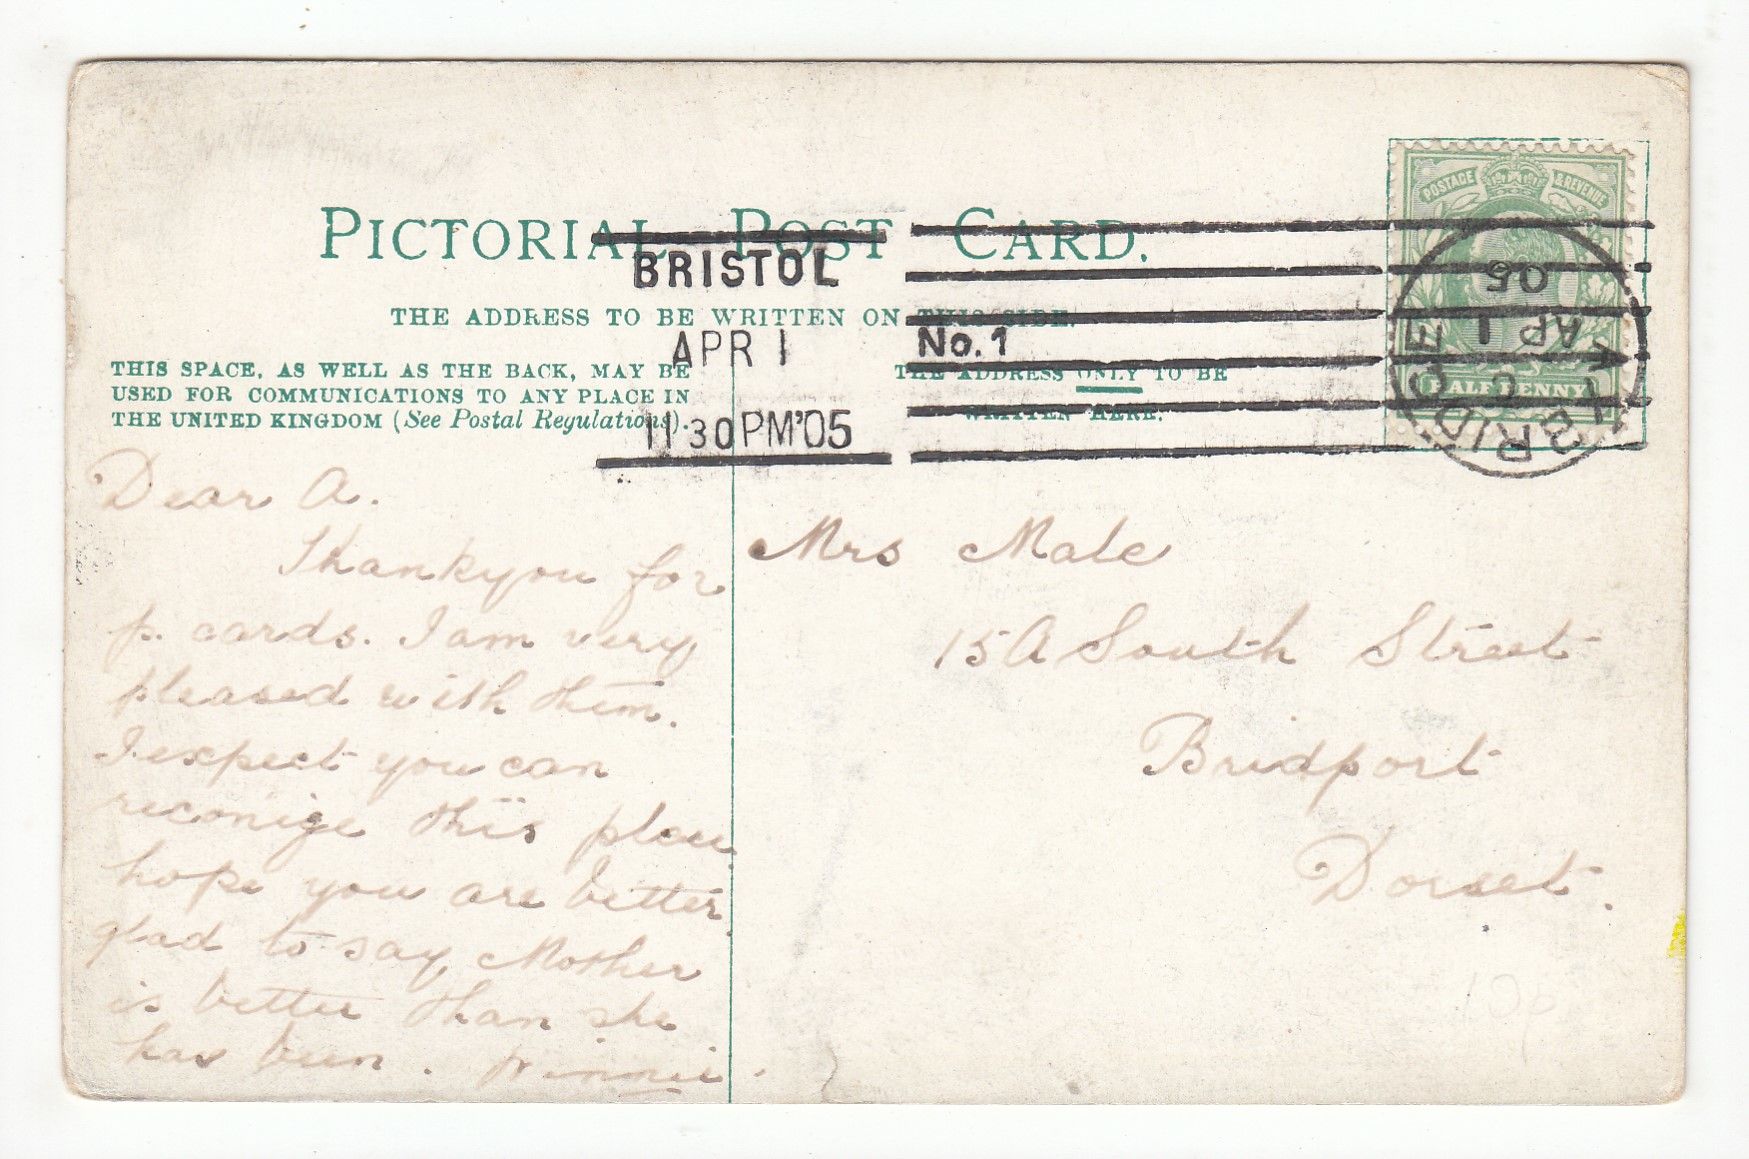 PICTORIAL POST CARD.
THE ADDRESS TO BE WRITTEN ON THIS SIDE.
THIS SPACE, AS WELL AS THE BACK, MAY BE
USED FOR COMMUNICATIONS TO ANY PLACE IN
THE UNITED KINGDOM (See Postal Regulations).
THE ADDRESS ONLY TO BE
WRITTEN HERE.
BRISTOL
APR 1
11 30 PM '05
No. 1
POSTAGE & REVENUE
HALFPENNY
BRIDGE
C
AP 1
05
Dear A.
Thankyou for
p. cards. I am very
pleased with them.
I expect you can
reconige this place
hope you are better.
glad to say Mother
is better than she
has been. Winnie.
Mrs Male
15A South Street
Bridport
Dorset.
10p